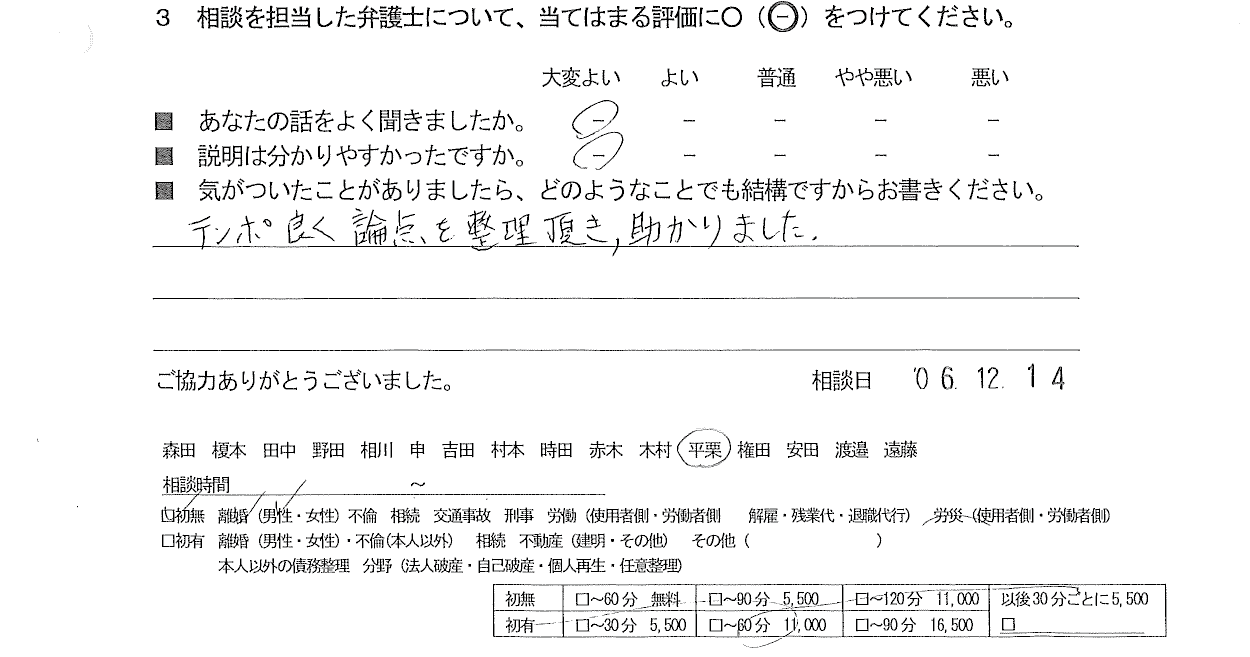 3 相談を担当した弁護士について、当てはまる評価に〇(㊀)をつけてください。
大変よい よい 普通 やや悪い 悪い
■ あなたの話をよく聞きましたか。 － － － － －
■ 説明は分かりやすかったですか。 － － － － －
■ 気がついたことがありましたら、どのようなことでも結構ですからお書きください。
テンポ良く論点を整理頂き,助かりました.
ご協力ありがとうございました。 相談日 '06.12.14
森田 榎本 田中 野田 相川 申 吉田 村本 時田 赤木 木村 平栗 権田 安田 渡邉 遠藤
相談時間 ～
□初無 離婚(男性・女性)不倫 相続 交通事故 刑事 労働(使用者側・労働者側 解雇・残業代・退職代行) 労災(使用者側・労働者側)
□初有 離婚(男性・女性)・不倫(本人以外) 相続 不動産(建明・その他) その他( )
本人以外の債務整理 分野(法人破産・自己破産・個人再生・任意整理)
初無 □～60分 無料 □～90分 5,500 □～120分 11,000 以後30分ごとに5,500
初有 □～30分 5,500 □～60分 11,000 □～90分 16,500 □